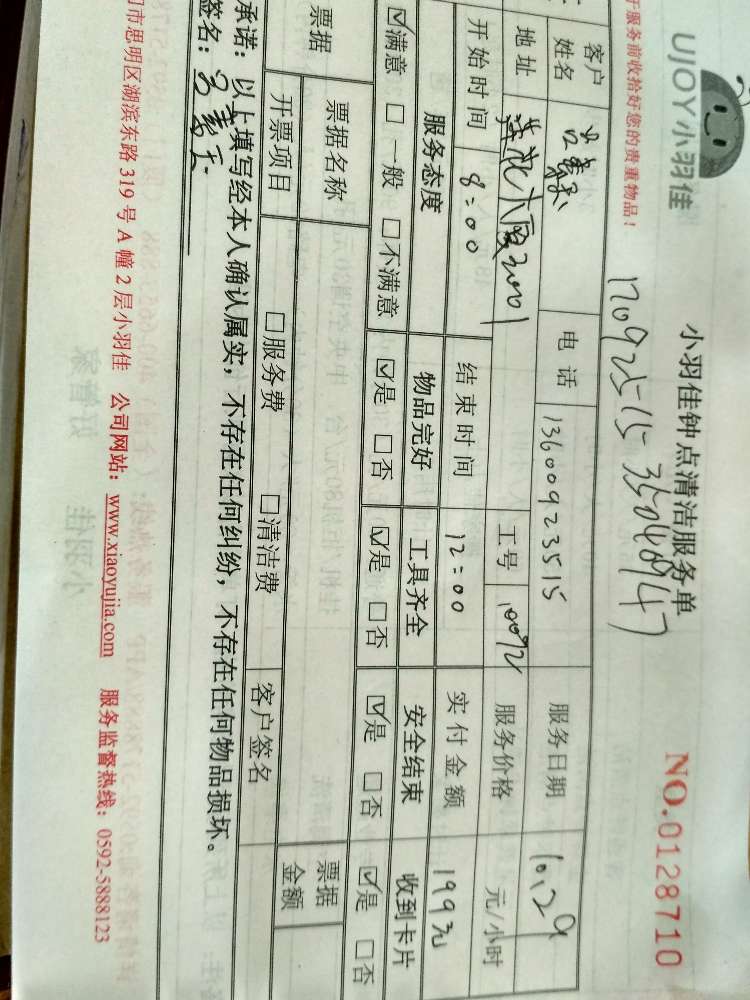 UJOY小羽佳
小羽佳钟点清洁服务单
NO.0128710
于服务前收拾好您的贵重物品!
客户姓名 电话 13600923515 服务日期 10.29
地址 莲花大厦2001 工号 10092 服务价格 元/小时
开始时间 8:00 结束时间 12:00 实付金额 199元
服务态度 物品完好 工具齐全 安全结束 收到卡片
☑满意 □一般 □不满意 ☑是 □否 ☑是 □否 ☑是 □否 ☑是 □否
票据 票据名称 票据金额
开票项目 □服务费 □清洁费 客户签名
承诺：以上填写经本人确认属实，不存在任何纠纷，不存在任何物品损坏。
签名：
门市思明区湖滨东路 319 号 A 幢 2 层小羽佳 公司网站：www.xiaoyujia.com 服务监督热线：0592-5888123